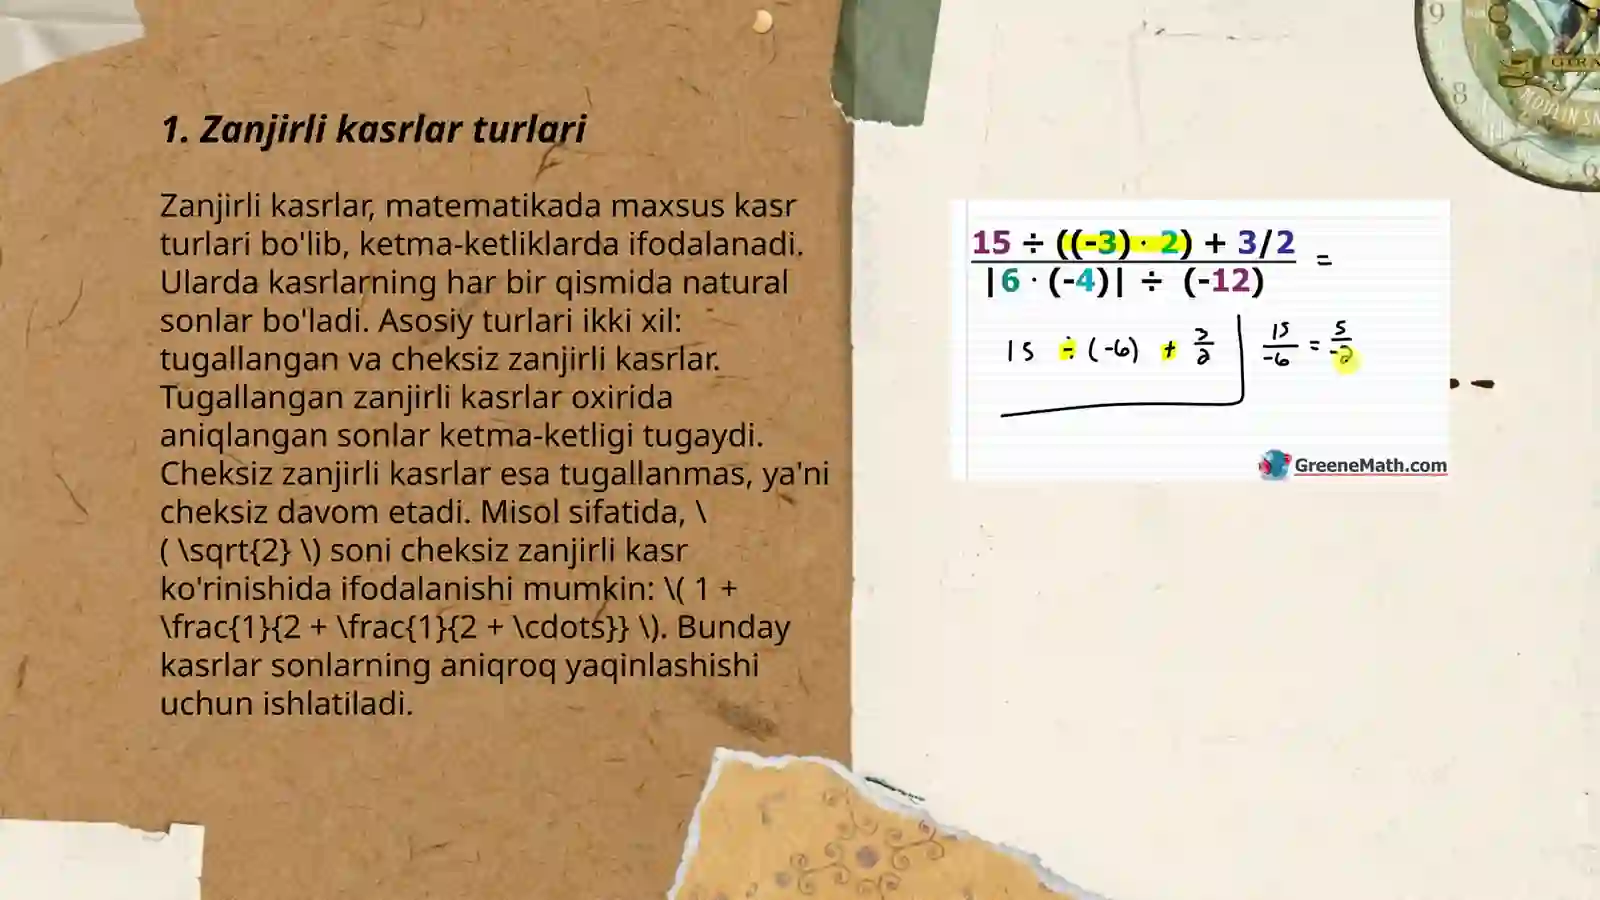 1. Zanjirli kasrlar turlari
Zanjirli kasrlar, matematikada maxsus kasr
turlari bo'lib, ketma-ketliklarda ifodalanadi.
Ularda kasrlarning har bir qismida natural
sonlar bo'ladi. Asosiy turlari ikki xil:
tugallangan va cheksiz zanjirli kasrlar.
Tugallangan zanjirli kasrlar oxirida
aniqlangan sonlar ketma-ketligi tugaydi.
Cheksiz zanjirli kasrlar esa tugallanmas, ya'ni
cheksiz davom etadi. Misol sifatida, \
( \sqrt{2} \) soni cheksiz zanjirli kasr
ko'rinishida ifodalanishi mumkin: \( 1 +
\frac{1}{2 + \frac{1}{2 + \cdots}} \). Bunday
kasrlar sonlarning aniqroq yaqinlashishi
uchun ishlatiladi.
15 ÷ ((-3) · 2) + 3/2 =
|6 · (-4)| ÷ (-12)
15 ÷ (-6) + 3/2
15/-6 = 5/-2
GreeneMath.com
9
8
6
MOULIN